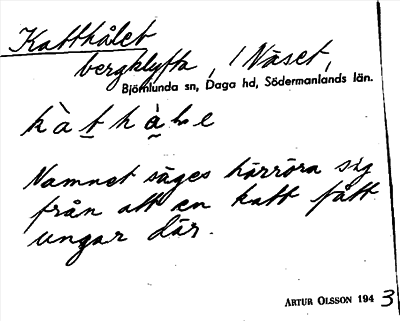 Katthålet
bergklyfta, / Näset,
Björnlunda sn, Daga hd, Södermanlands län.
kàṯhà̱le
Namnet säges härröra sig
från att en katt fått
ungar där.
ARTUR OLSSON 1943